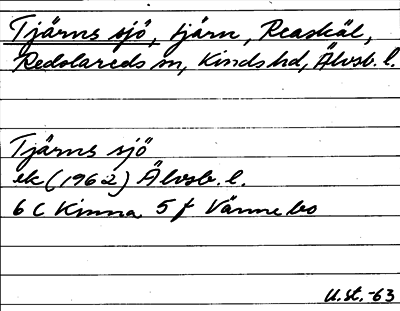 Tjärns sjö, tjärn, Reaskäl,
Redslareds sn, Kinds hd, Älvsb. l.
Tjärns sjö
ek (1962) Älvsb. l.
6 C Kinna 5 f Värnebo
U.st.-63